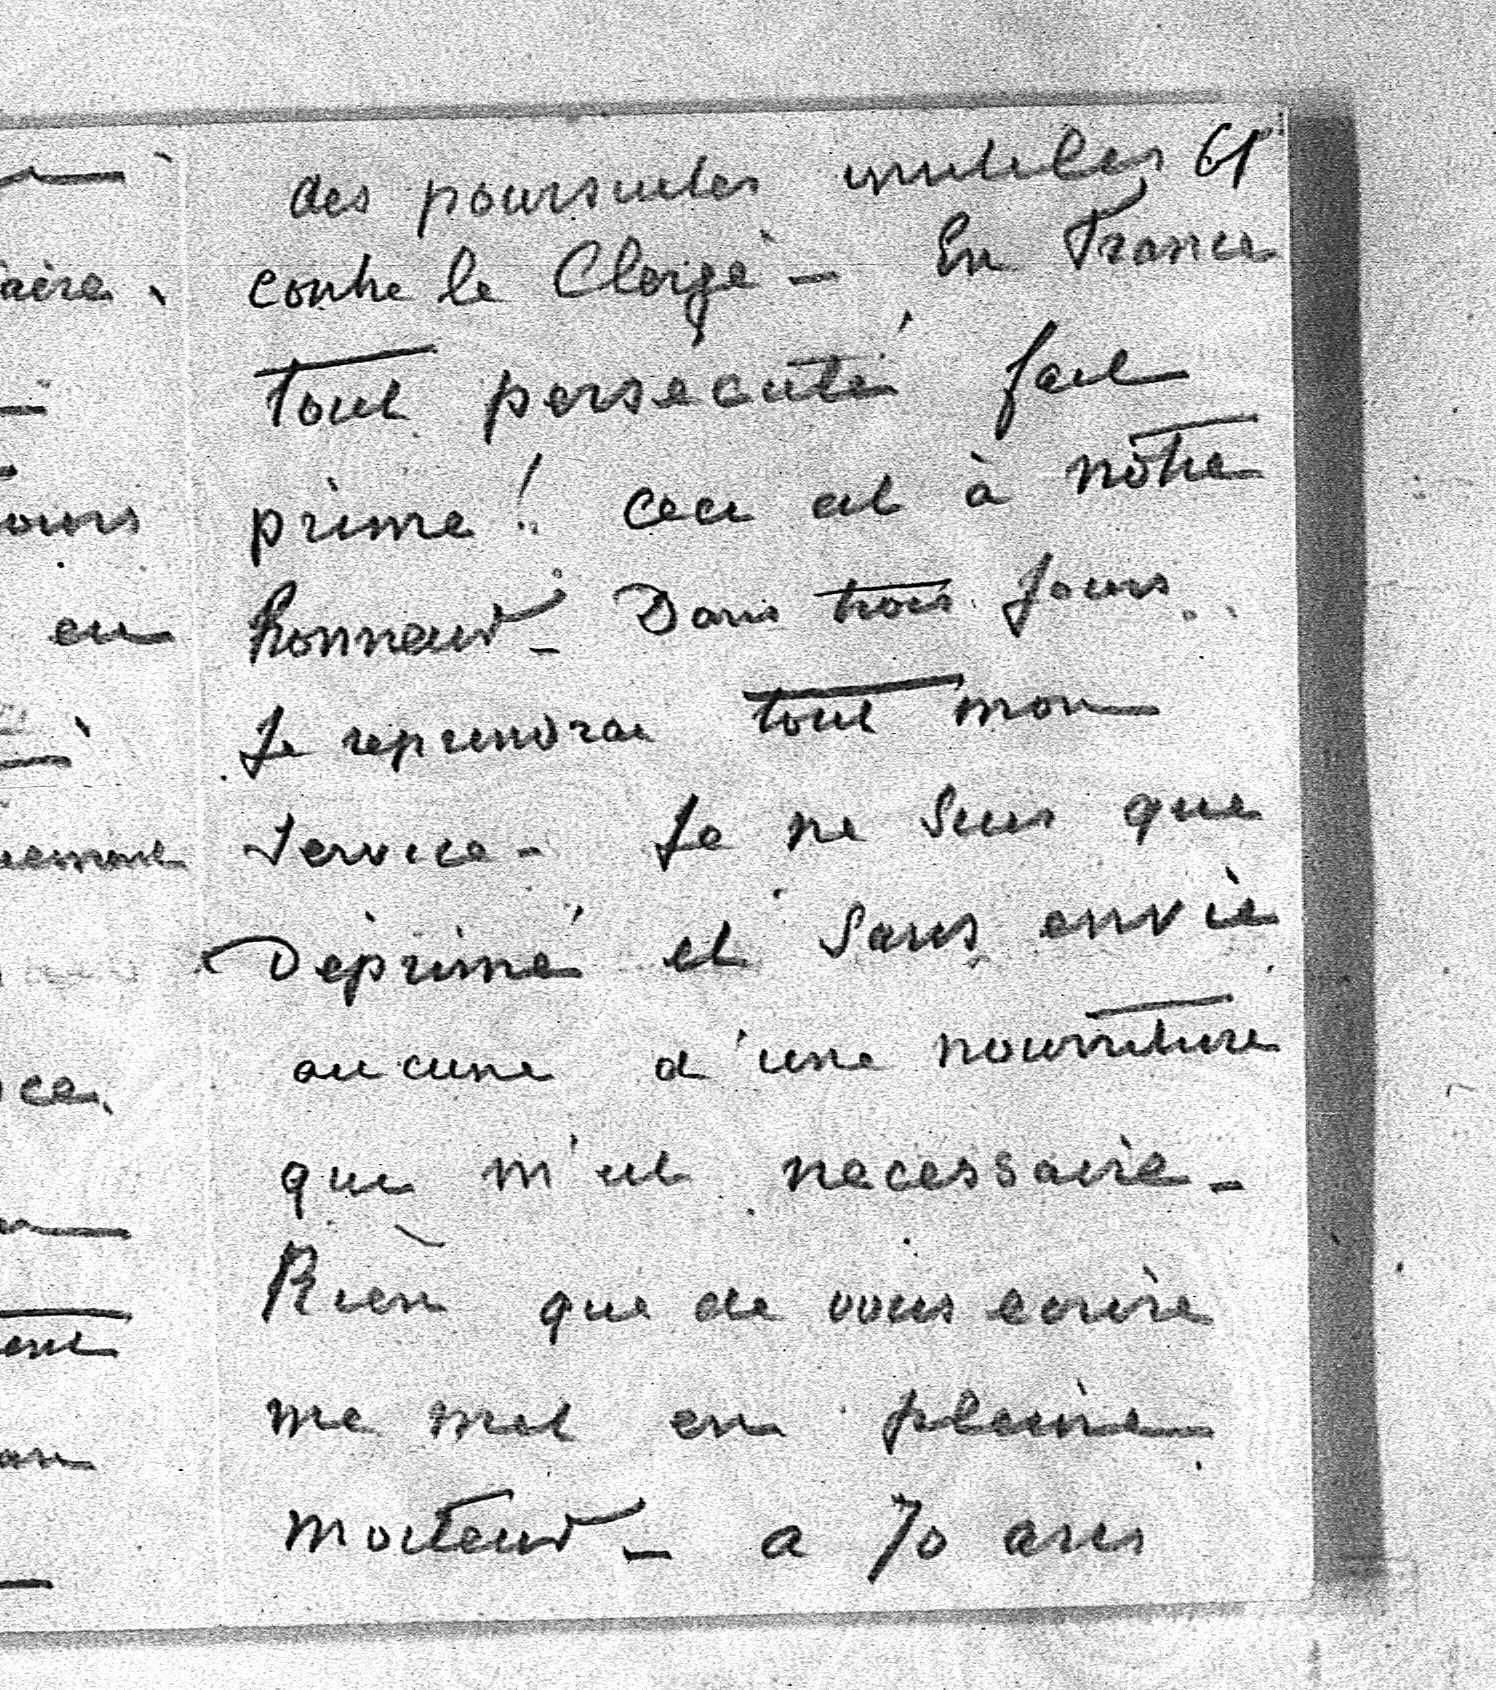 des poursuites inutiles 61
contre le Clergé – En France
tout persécuté fait
prime ! ceci est à notre
honneur – Dans trois jours
Je reprendrai tout mon
service – Je ne suis que
déprimé et sans envie
aucune d'une nourriture
qui m'est necessaire –
Rien que de vous ecrire
me met en pleine
moiteur – a 70 ans
aire
ours
en